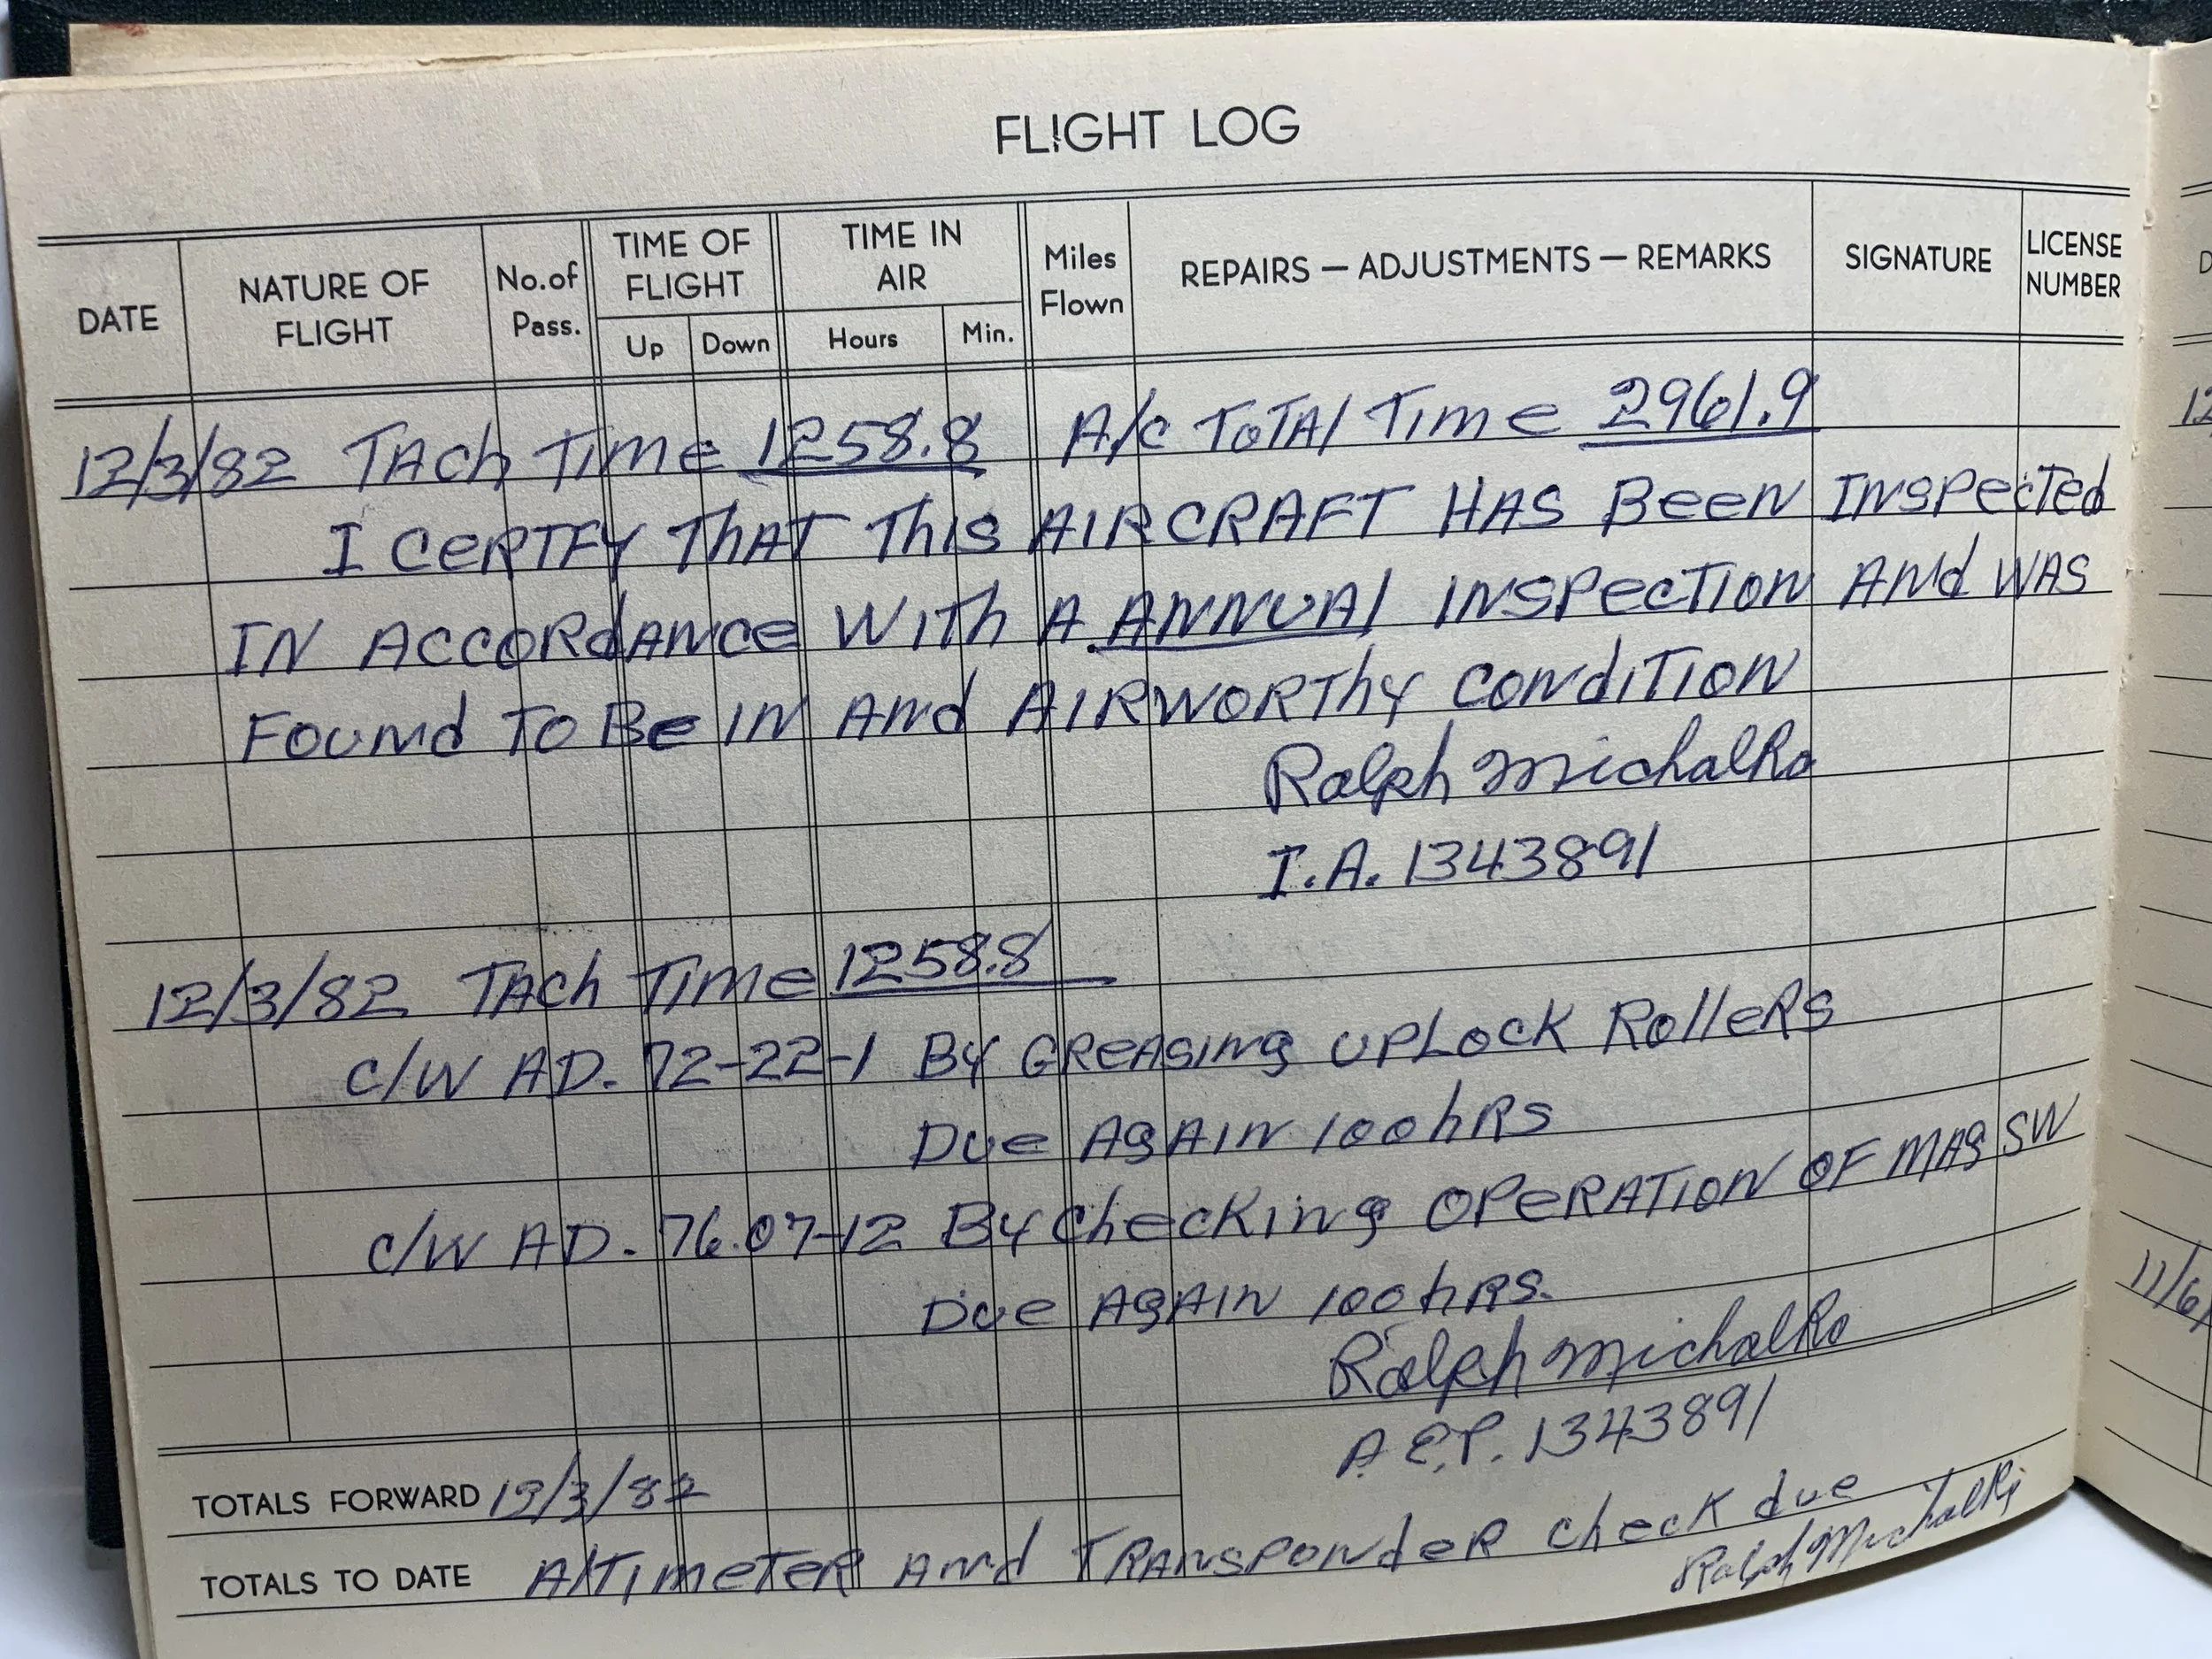 FLIGHT LOG
DATE
NATURE OF FLIGHT
No.of Pass.
TIME OF FLIGHT
Up
Down
TIME IN AIR
Hours
Min.
Miles Flown
REPAIRS — ADJUSTMENTS — REMARKS
SIGNATURE
LICENSE NUMBER
12/3/82 TACh TIMe 1258.8 A/C TOTAl TIMe 2961.9
I CeRTFY ThAT ThIS AIRCRAFT HAS BeeN INSPecTed
IN ACCORdANCe WITh A ANNUAl INSPecTION ANd WAS
FOUNd TO Be IN ANd AIRWORThY CONdITION
Ralph Michalko
I.A. 1343891
12/3/82 TACh TIMe 1258.8
C/W AD. 72-22-1 BY GReASINg UPLOCK ROlleRS
DUe AgAIN 100 hRS
C/W AD. 76.07-12 BY CheCKINg OPeRATION OF MAg SW
DUe AgAIN 100 hRS.
Ralph Michalko
A.&P. 1343891
TOTALS FORWARD 12/3/82
TOTALS TO DATE AlTIMeTeR ANd TRANSPONdeR CheCK due
Ralph Michalko
12
11/6/